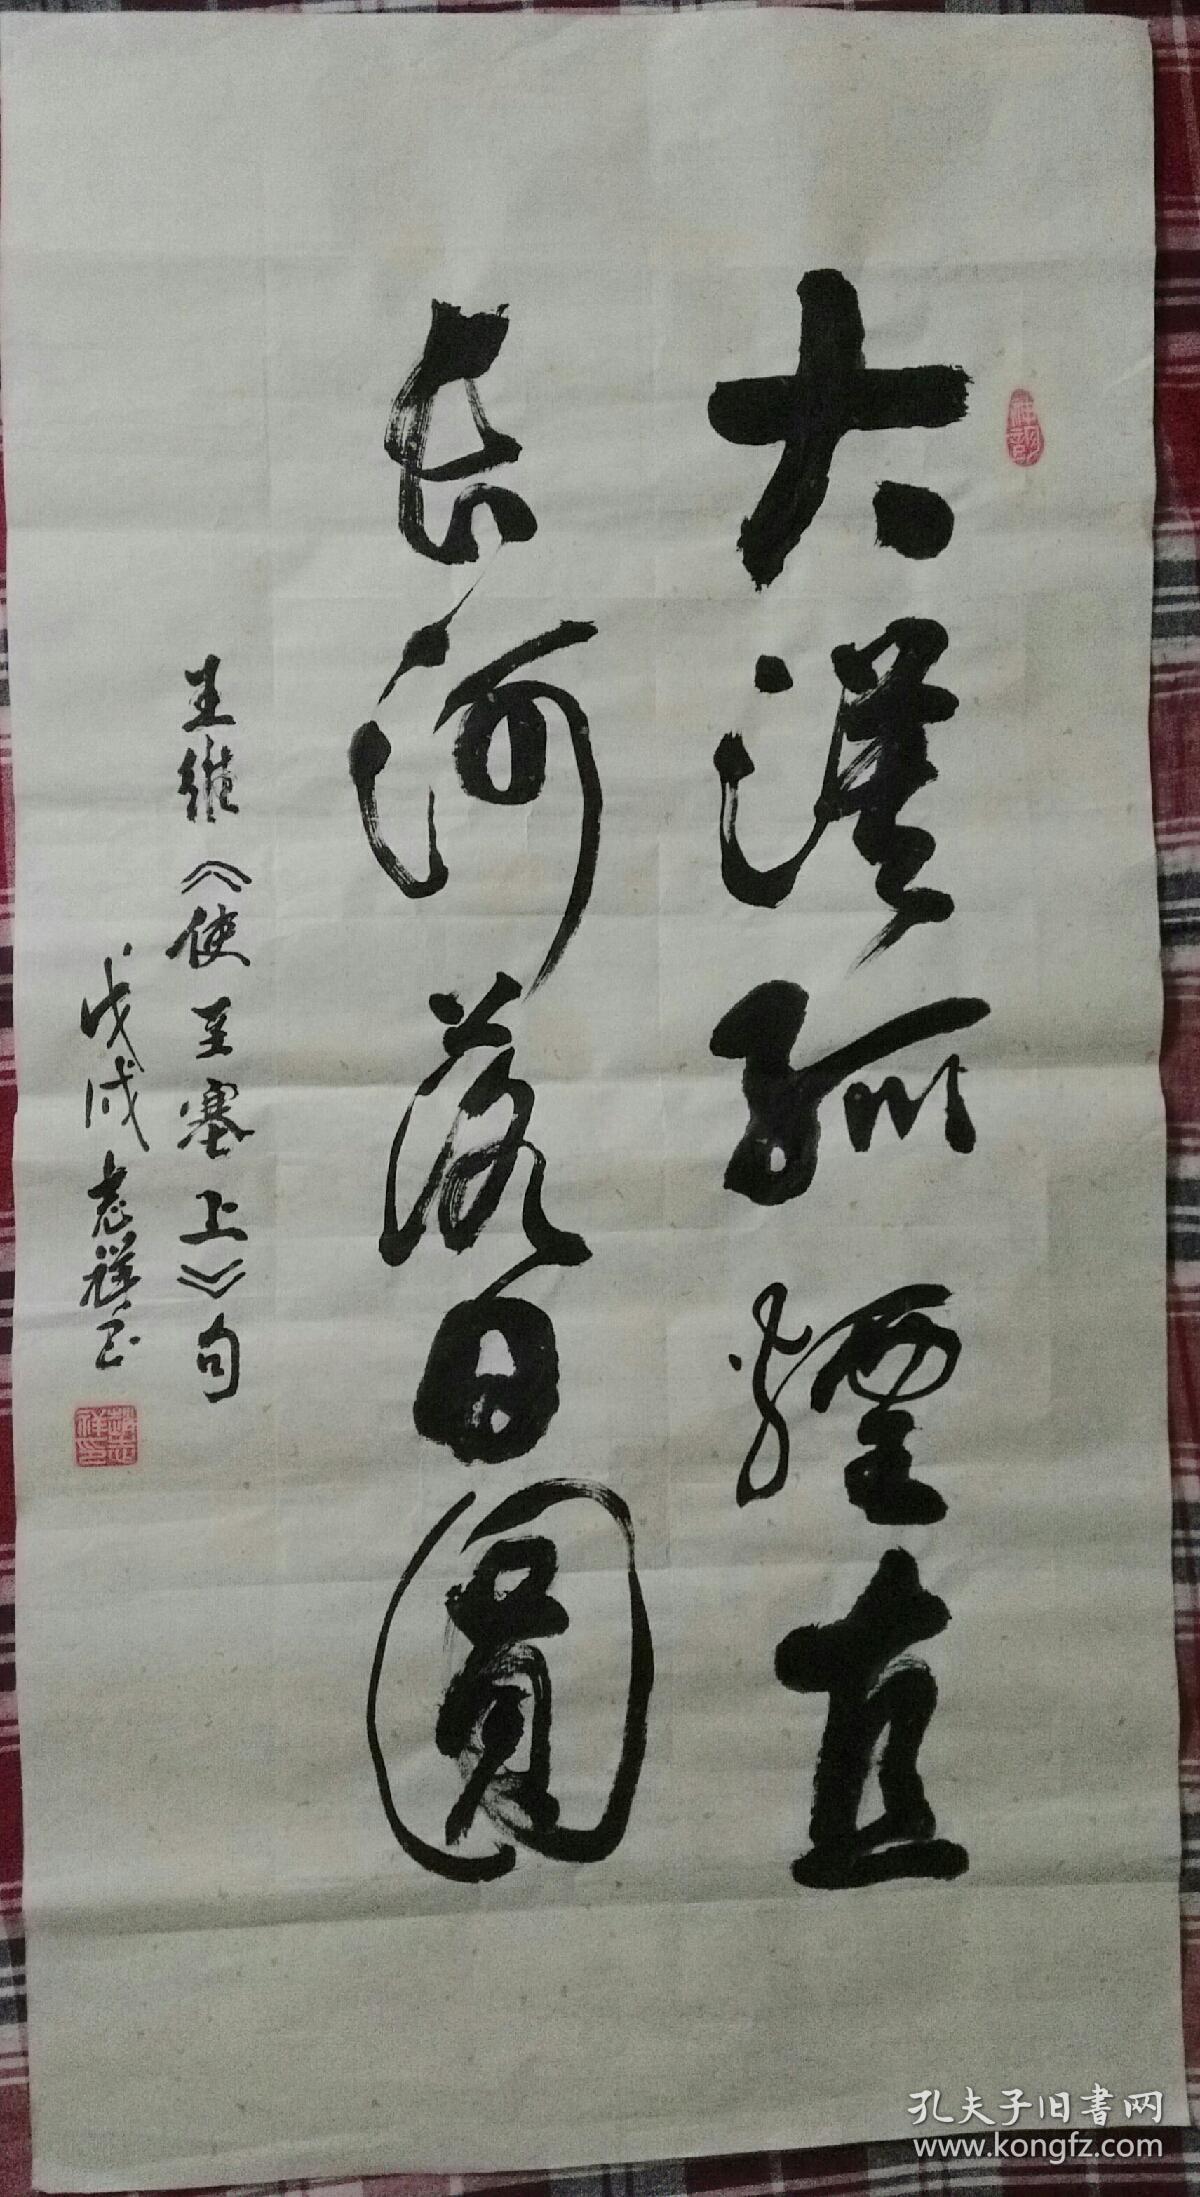 大漠孤煙直
长河落日圆
王维《使至塞上》句
戊戌志祥书
孔夫子旧書网
www.kongfz.com